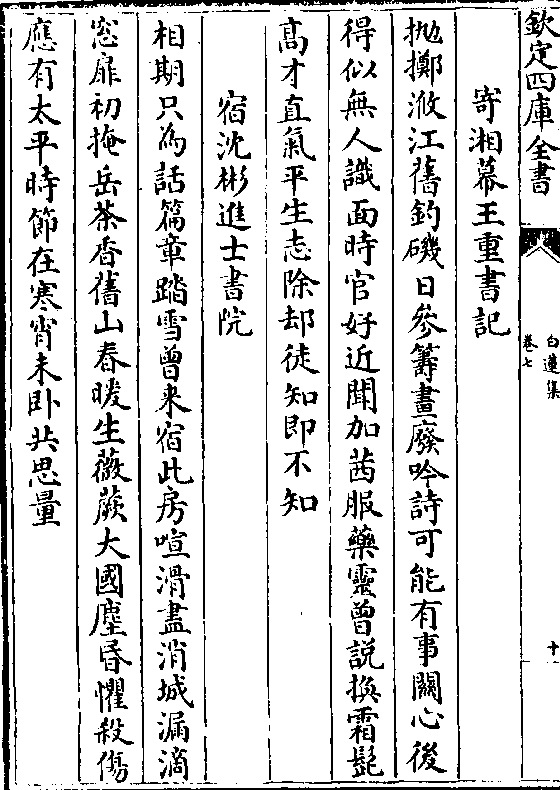 欽定四庫全書
白蓮集
卷七
十
寄湘幕王重書記
抛擲㴲江舊釣磯日參籌畫廢吟詩可能有事關心後
得似無人識面時官好近聞加茜服藥靈曾説換霜髭
髙才直氣平生志除却徒知即不知
宿沈彬進士書院
相期只為話篇章踏雪曾来宿此房喧滑盡消城漏滴
窓扉初掩岳茶香舊山春暖生薇蕨大國塵昏懼殺傷
應有太平時節在寒宵未卧共思量